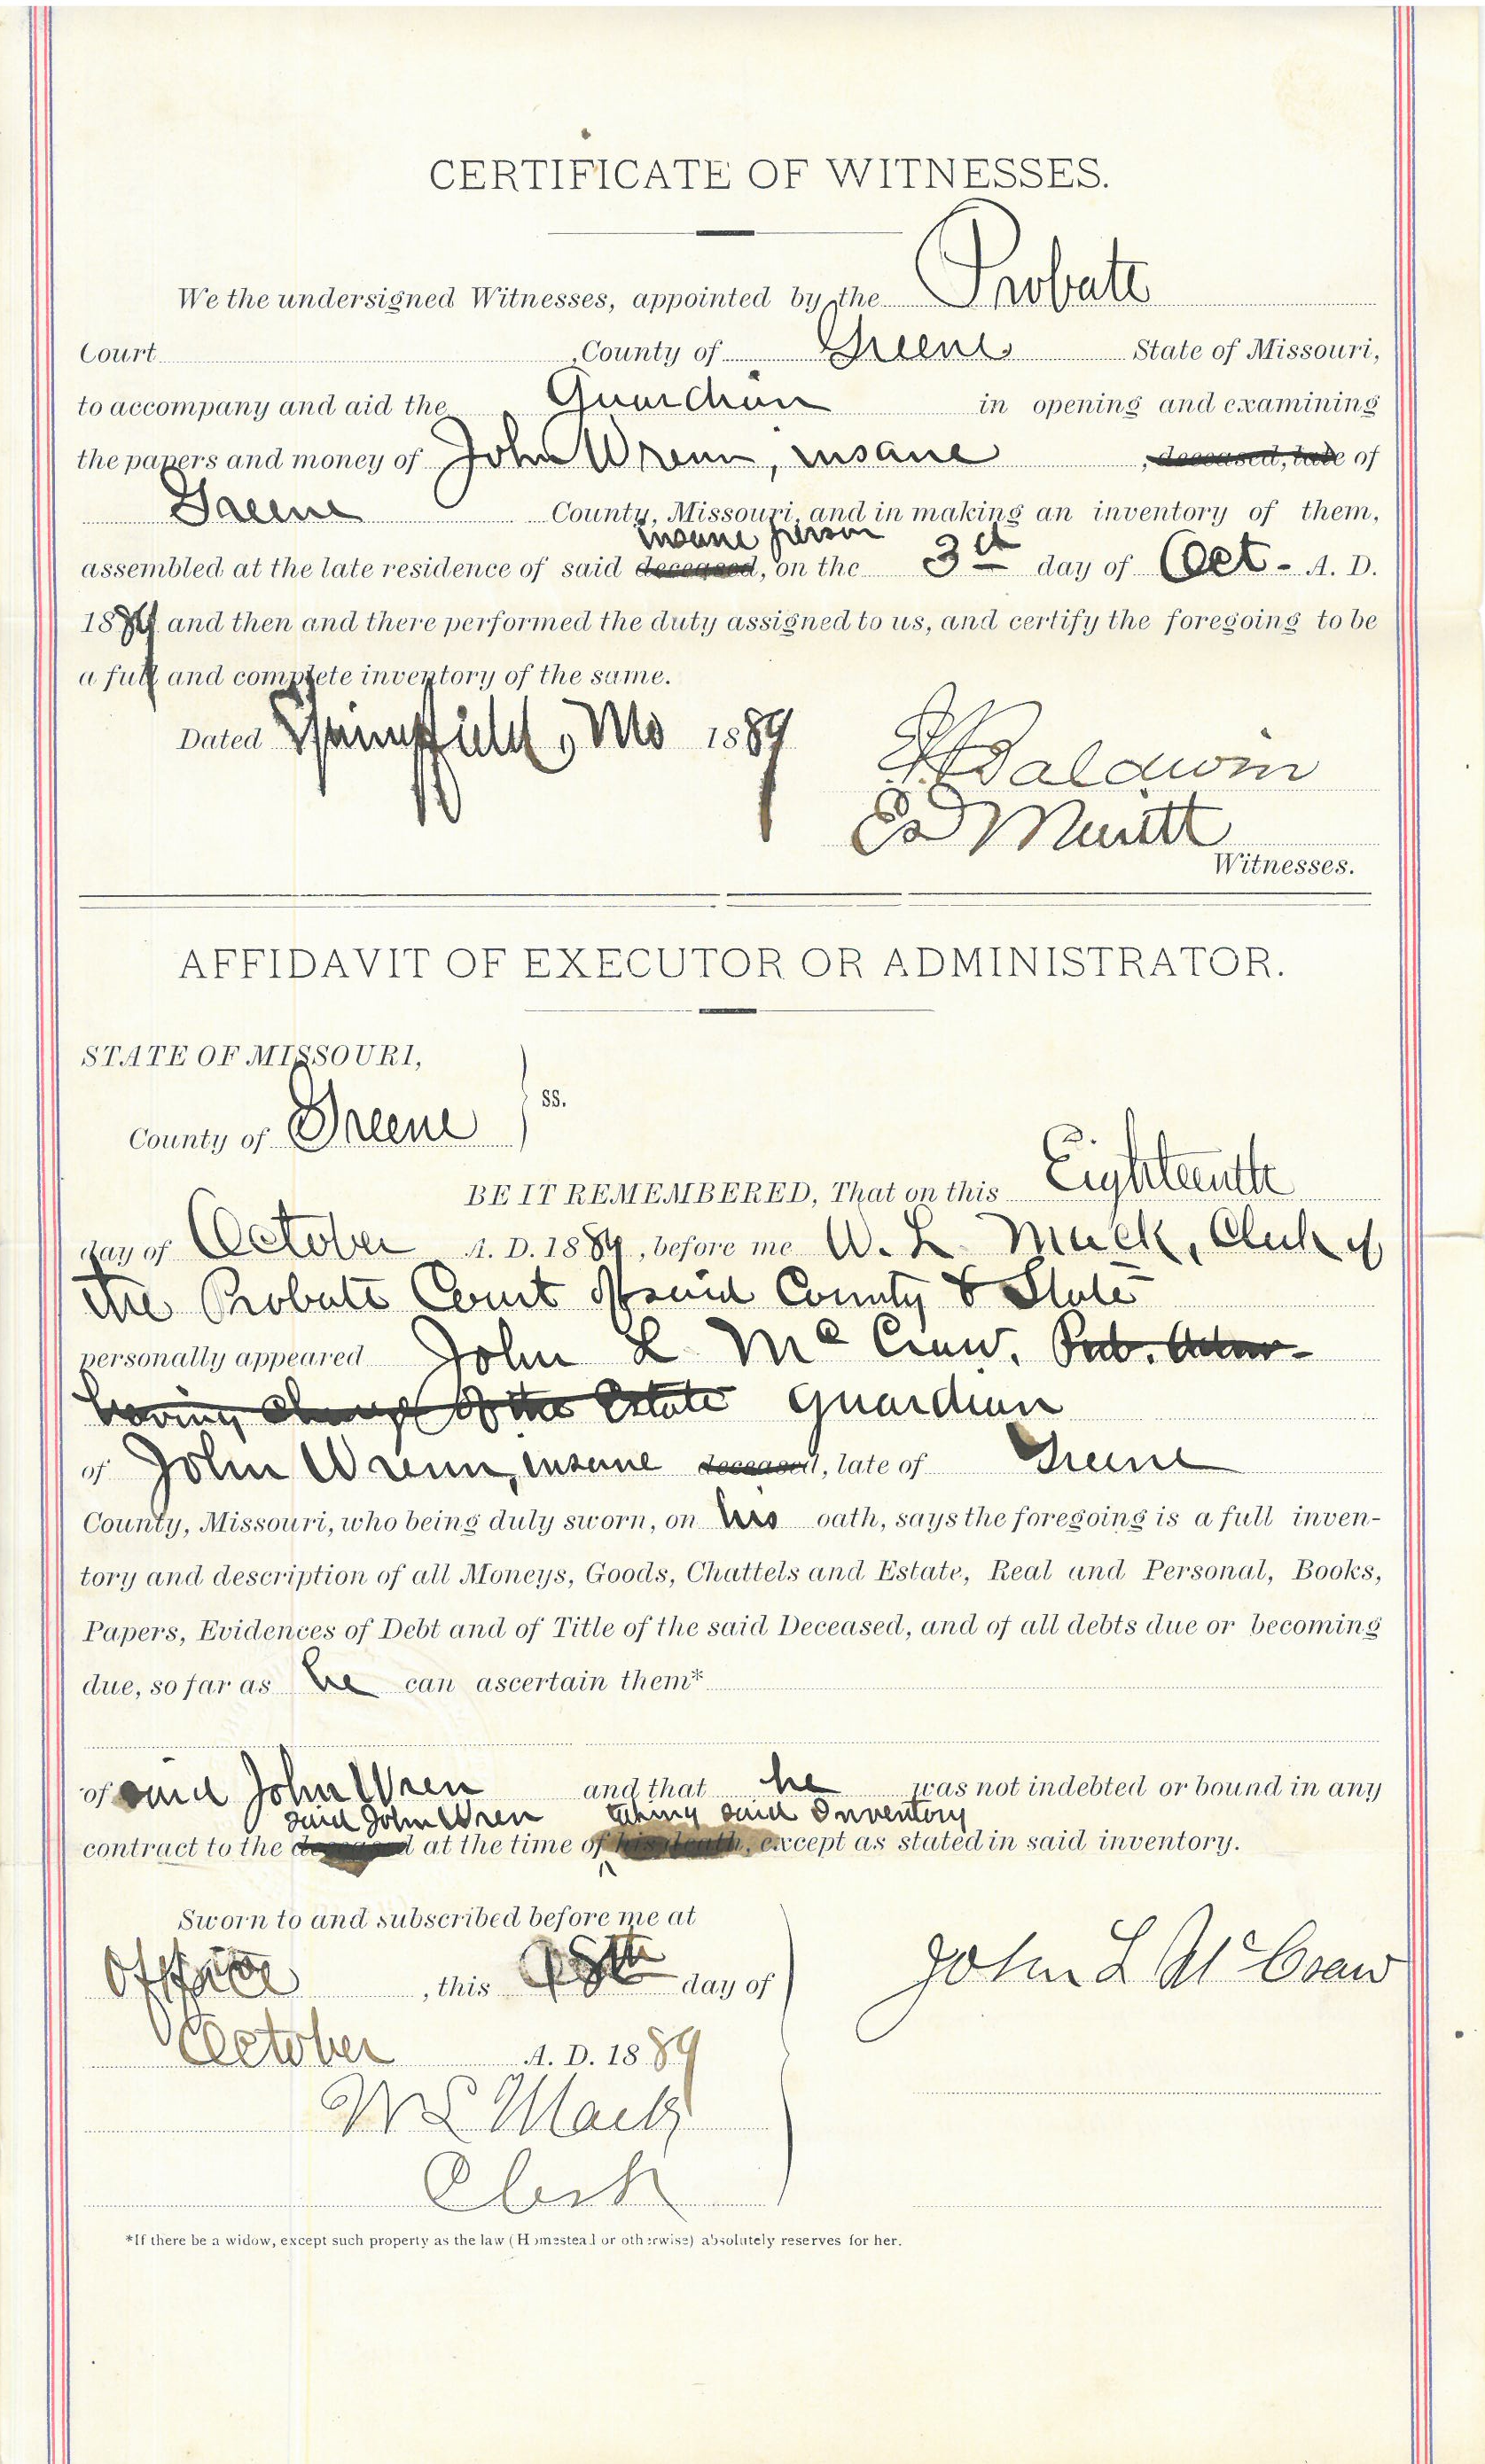 CERTIFICATE OF WITNESSES.
We the undersigned Witnesses, appointed by the Probate
Court , County of Greene State of Missouri,
to accompany and aid the Guardian in opening and examining
the papers and money of John Wrenn, insane , deceased, late of
Greene County, Missouri, and in making an inventory of them,
insane person
assembled at the late residence of said deceased, on the 3d day of Oct - A. D.
1889 and then and there performed the duty assigned to us, and certify the foregoing to be
a full and complete inventory of the same.
Dated Springfield, Mo 1889
Baldwin
Ed Merritt
Witnesses.
AFFIDAVIT OF EXECUTOR OR ADMINISTRATOR.
STATE OF MISSOURI,
ss.
County of Greene
BE IT REMEMBERED, That on this Eighteenth
day of October A. D. 1889, before me W. L. Mack, Clerk of
the Probate Court of said County & State
personally appeared John L. McCraw, Pub. Admr-
having Charge of the Estate Guardian
of John Wrenn, insane deceased, late of Greene
County, Missouri, who being duly sworn, on his oath, says the foregoing is a full inven-
tory and description of all Moneys, Goods, Chattels and Estate, Real and Personal, Books,
Papers, Evidences of Debt and of Title of the said Deceased, and of all debts due or becoming
due, so far as he can ascertain them*
of said John Wren and that he was not indebted or bound in any
said John Wren taking said Inventory
contract to the deceased at the time of his death, except as stated in said inventory.
Sworn to and subscribed before me at
Office , this 18th day of
October A. D. 1889
W L Mack
Clerk
John L McCraw
*If there be a widow, except such property as the law (Homestead or otherwise) absolutely reserves for her.